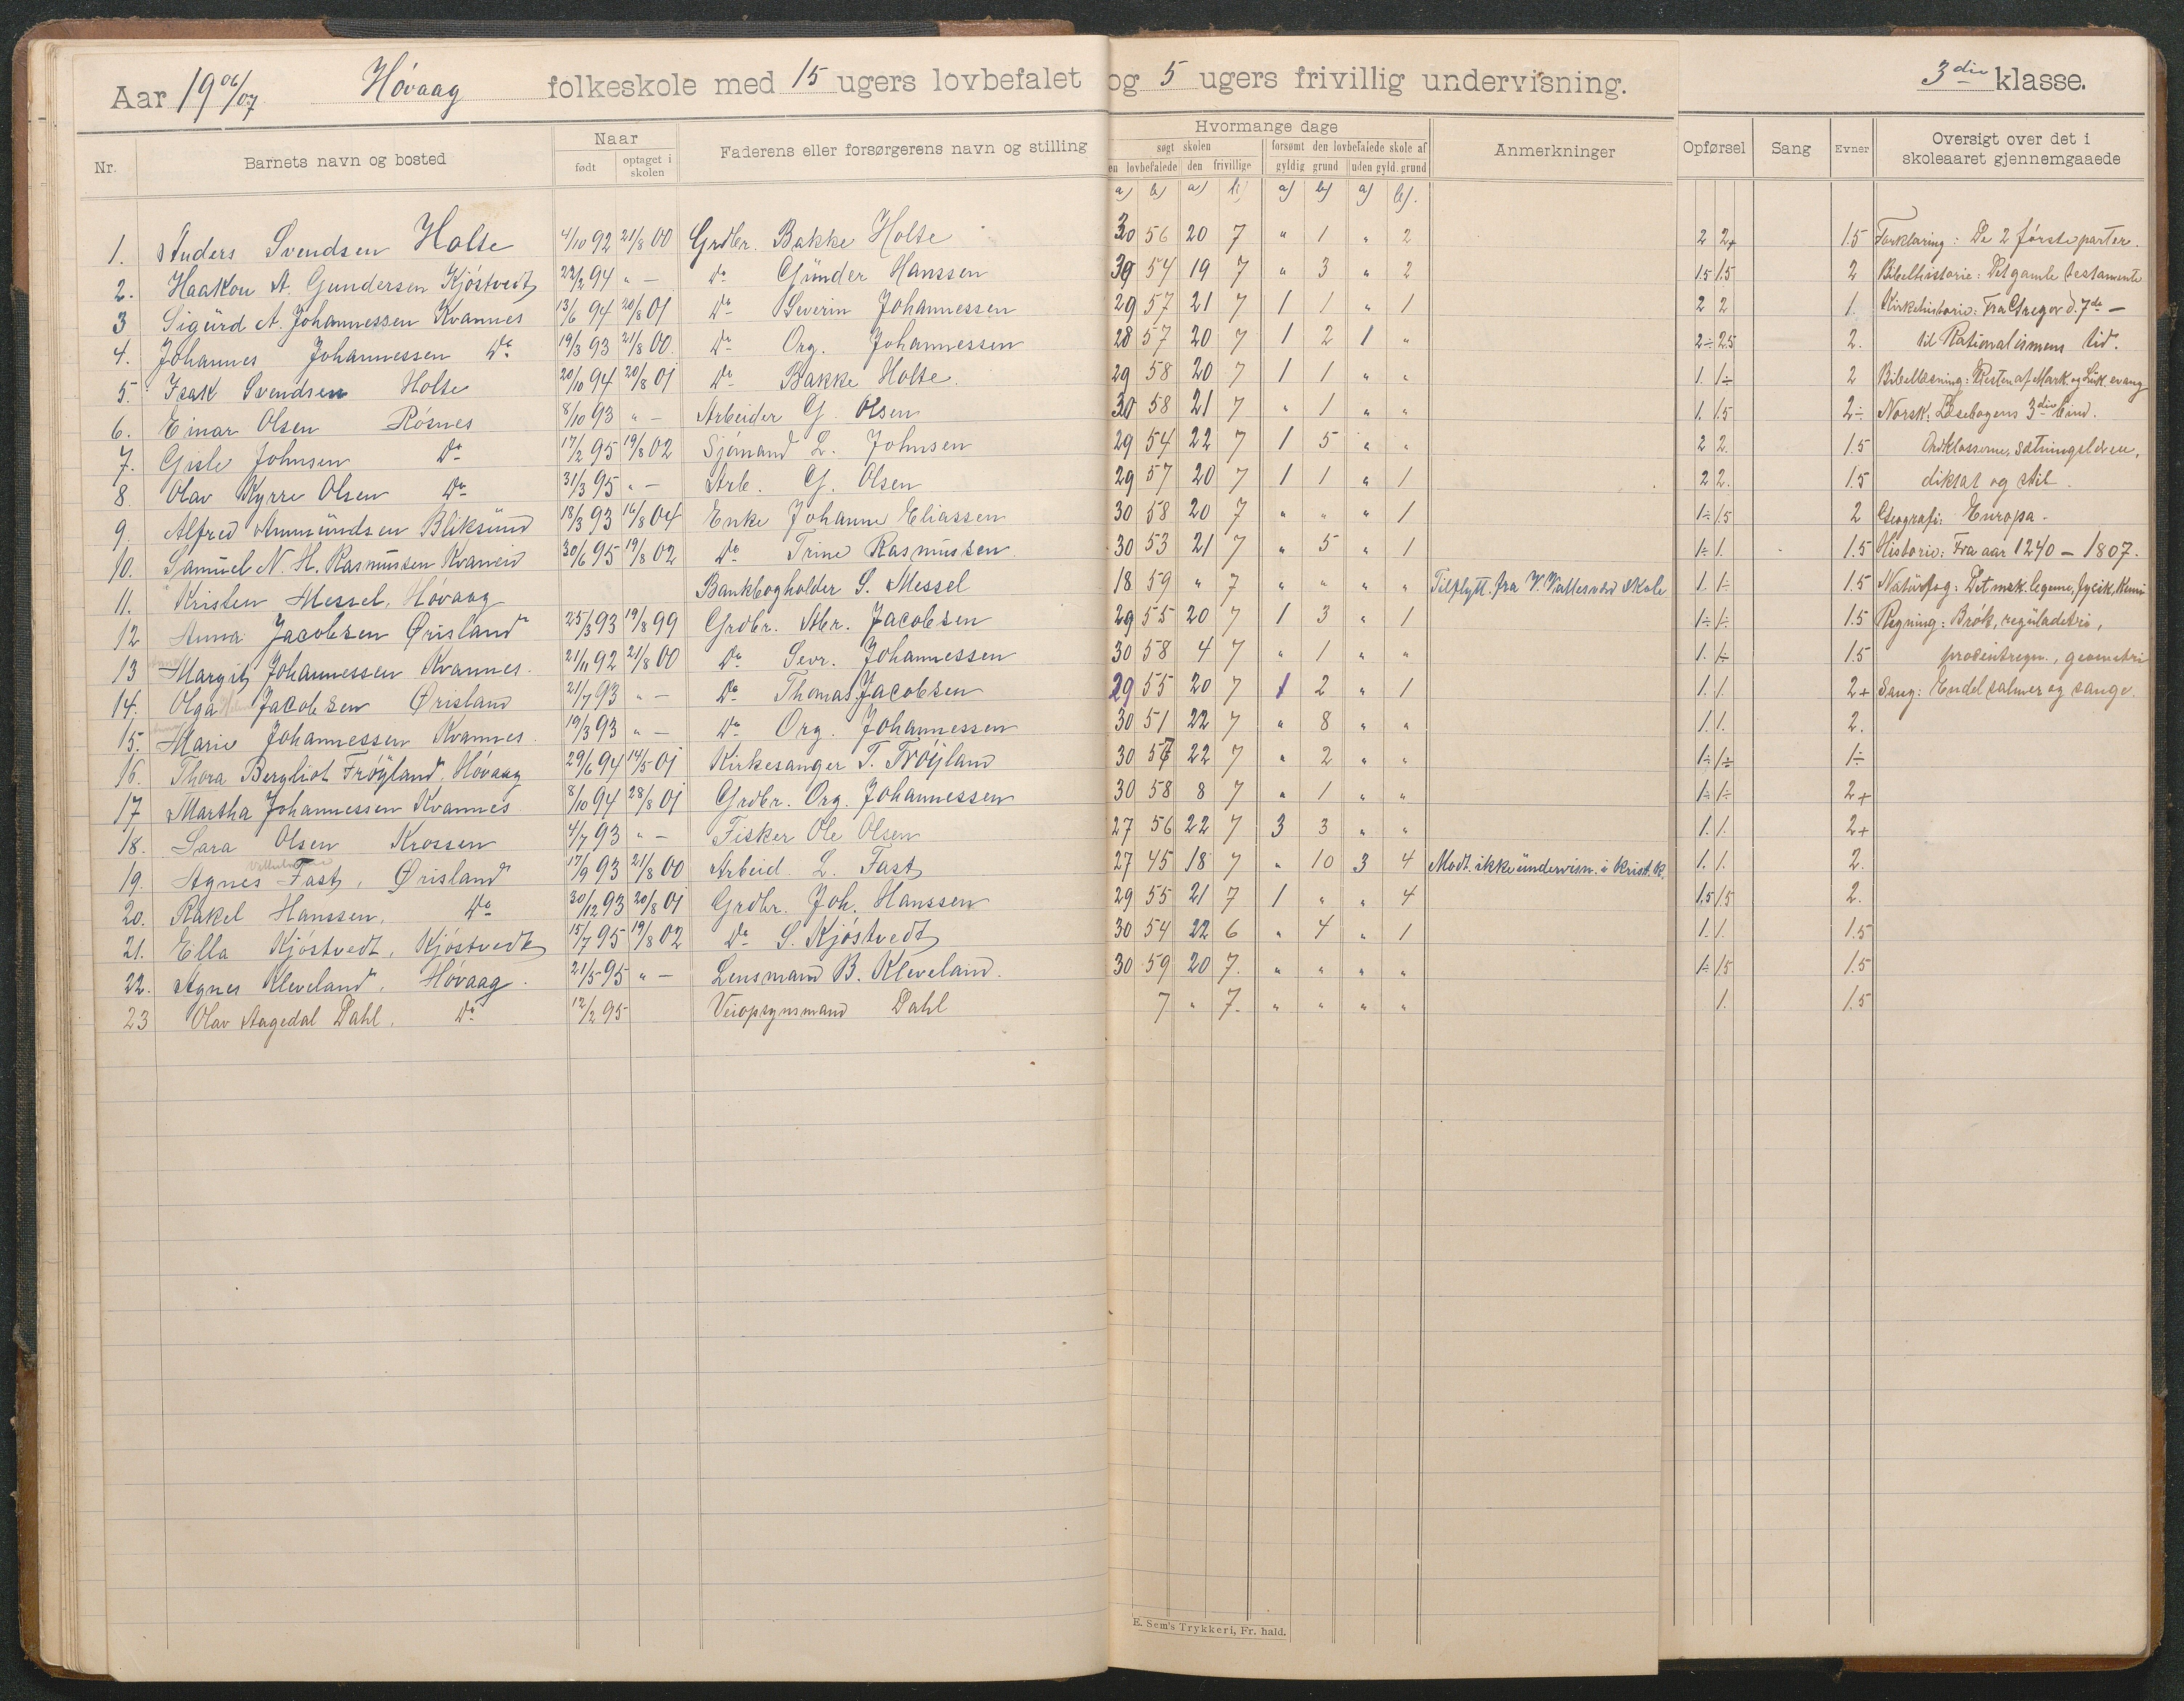 Aar 1906/07 Høvaag folkeskole med 15 ugers lovbefalet og 5 ugers frivillig undervisning. 3die klasse.
Nr. Barnets navn og bosted Naar født optaget i skolen Faderens eller forsørgerens navn og stilling Hvormange dage søgt skolen den lovbefalede den frivillige forsømt den lovbefalede skole af gyldig grund uden gyld. grund Anmerkninger Opførsel Sang Evner Oversigt over det i skoleaaret gjennemgaaede
a) b) a) b) a) b) a) b).
1. Anders Svendsen Holte 4/10 92 21/8 00 Grdbr. Bakke Holte 30 56 20 7 " 1 " 2 2 2+ 1.5 Forklaring: De 2 første parter.
2. Haakon A. Gundersen Kjöstvedt 22/2 94 " — Do Günder Hanssen 30 54 19 7 " 3 " 2 1.5 1.5 2 Bibelhistorie: Det gamle testamente
3 Sigürd A. Johannessen Kvannes 13/6 94 20/8 01 Do Severin Johannessen 29 57 21 7 1 1 " 1 2 2 1. Kirkehistorie: Fra Gregor d. 7de —
4. Johannes Johannessen Do 19/3 93 21/8 00. Do Org. Johannessen 28 57 20 7 1 2 1 " 2÷ 2.5 2. til Rationalismens tid.
5. Isak Svendsen Holte 20/10 94 20/8 01 Do Bakke Holte. 29 58 20 7 1 1 " " 1. 1÷ 2 Bibellæsning: Resten af Mark. og Luk. evang
6. Einar Olsen Rösnes 8/10 93 " — Arbeider G. Olsen 30 58 21 7 " 1 " " 1. 1.5 2÷ Norsk: Læsebogens 3die bind.
7. Gisle Johnsen Do 17/2 95 19/8 02 Sjömand L. Johnsen 29 54 22 7 1 5 " " 2 2. 1.5 Ordklasserne, sætningslæren,
8. Olav Kyrre Olsen Do 31/3 95 " — Arb. G. Olsen 29 57 20 7 1 1 " 1 2 2. 1.5 diktat og stil.
9. Alfred Ammündsen Bliksünd 18/3 93 16/8 04 Enke Johanne Eliassen 30 58 20 7 " " " 1 1÷ 1.5 2 Geografi: Europa.
10. Samüel N. H. Rasmüssen Kvanneid 30/6 95 19/8 02 Do Trine Rasmüssen 30 53 21 7 " 5 " 1 1÷ 1. 1.5 Historie: Fra aar 1240 — 1807.
11. Kristen Messel, Høvaag Bankbogholder S. Messel 18 59 " 7 " " " " Tilflytt. fra V. Vallesværd Skole 1. 1÷ 1.5 Natürfag: Det msk. legeme, fysik, kemi
12 Anna Jacobsen Ørisland 25/3 93 19/8 99 Grdbr. Abr. Jacobsen 29 55 20 7 1 3 " 1 1÷ 1÷ 1.5 Regning: Brøk, regüladetri,
13 Margit Johannessen Kvannes. 21/11 92 21/8 00 Do Sevr. Johannessen 30 58 4 7 " 1 " " 1. 1÷ 1.5 procentregn., geometri
14. Olga Jacobsen Ørisland 21/7 93 " — Do Thomas Jacobsen 29 55 20 7 1 2 " 1 1. 1. 2+ Sang: Endel salmer og sange.
15. Marie Johannessen Kvannes. 19/3 93 " — Do Org. Johannessen 30 51 22 7 " 8 " " 1. 1. 2.
16. Thora Bergliot Frøyland, Høvaag 29/6 94 14/5 01 Kirkesanger T. Frøyland 30 57 22 7 " 2 " " 1÷ 1÷ 1÷
17 Martha Johannessen Kvannes 8/10 94 28/8 01 Grdbr. Org. Johannessen 30 58 8 7 " 1 " " 1÷ 1÷ 2+
18. Sara Olsen Krossen 4/7 93 " — Fisker Ole Olsen 27 56 22 7 3 3 " " 1. 1. 2+
19. Agnes Vilhelmine Fast, Ørisland 17/9 93 21/8 00 Arbeid. L. Fast 27 45 18 7 " 10 3 4 Modt. ikke ündervisn. i krist. k. 1. 1. 2.
20. Rakel Hanssen, Do 30/12 93 20/8 01 Grdbr. Joh. Hanssen 29 55 21 7 1 " " 4 1.5 1.5 2.
21. Ella Kjöstvedt, Kjöstvedt 15/7 95 19/8 02 Do S. Kjöstvedt 30 54 22 6 " 4 " 1 1. 1. 1.5
22. Agnes Kleveland, Høvaag. 21/5 95 " — Lensmand B. Kleveland. 30 59 20 7. " " " " 1÷ 1.5 1.5
23 Olav Aagedal Dahl, Do 12/2 95 Veiopsynsmand Dahl 7 " 7. " " " " 1. 1.5
E. Sem's Trykkeri, Fr. hald.